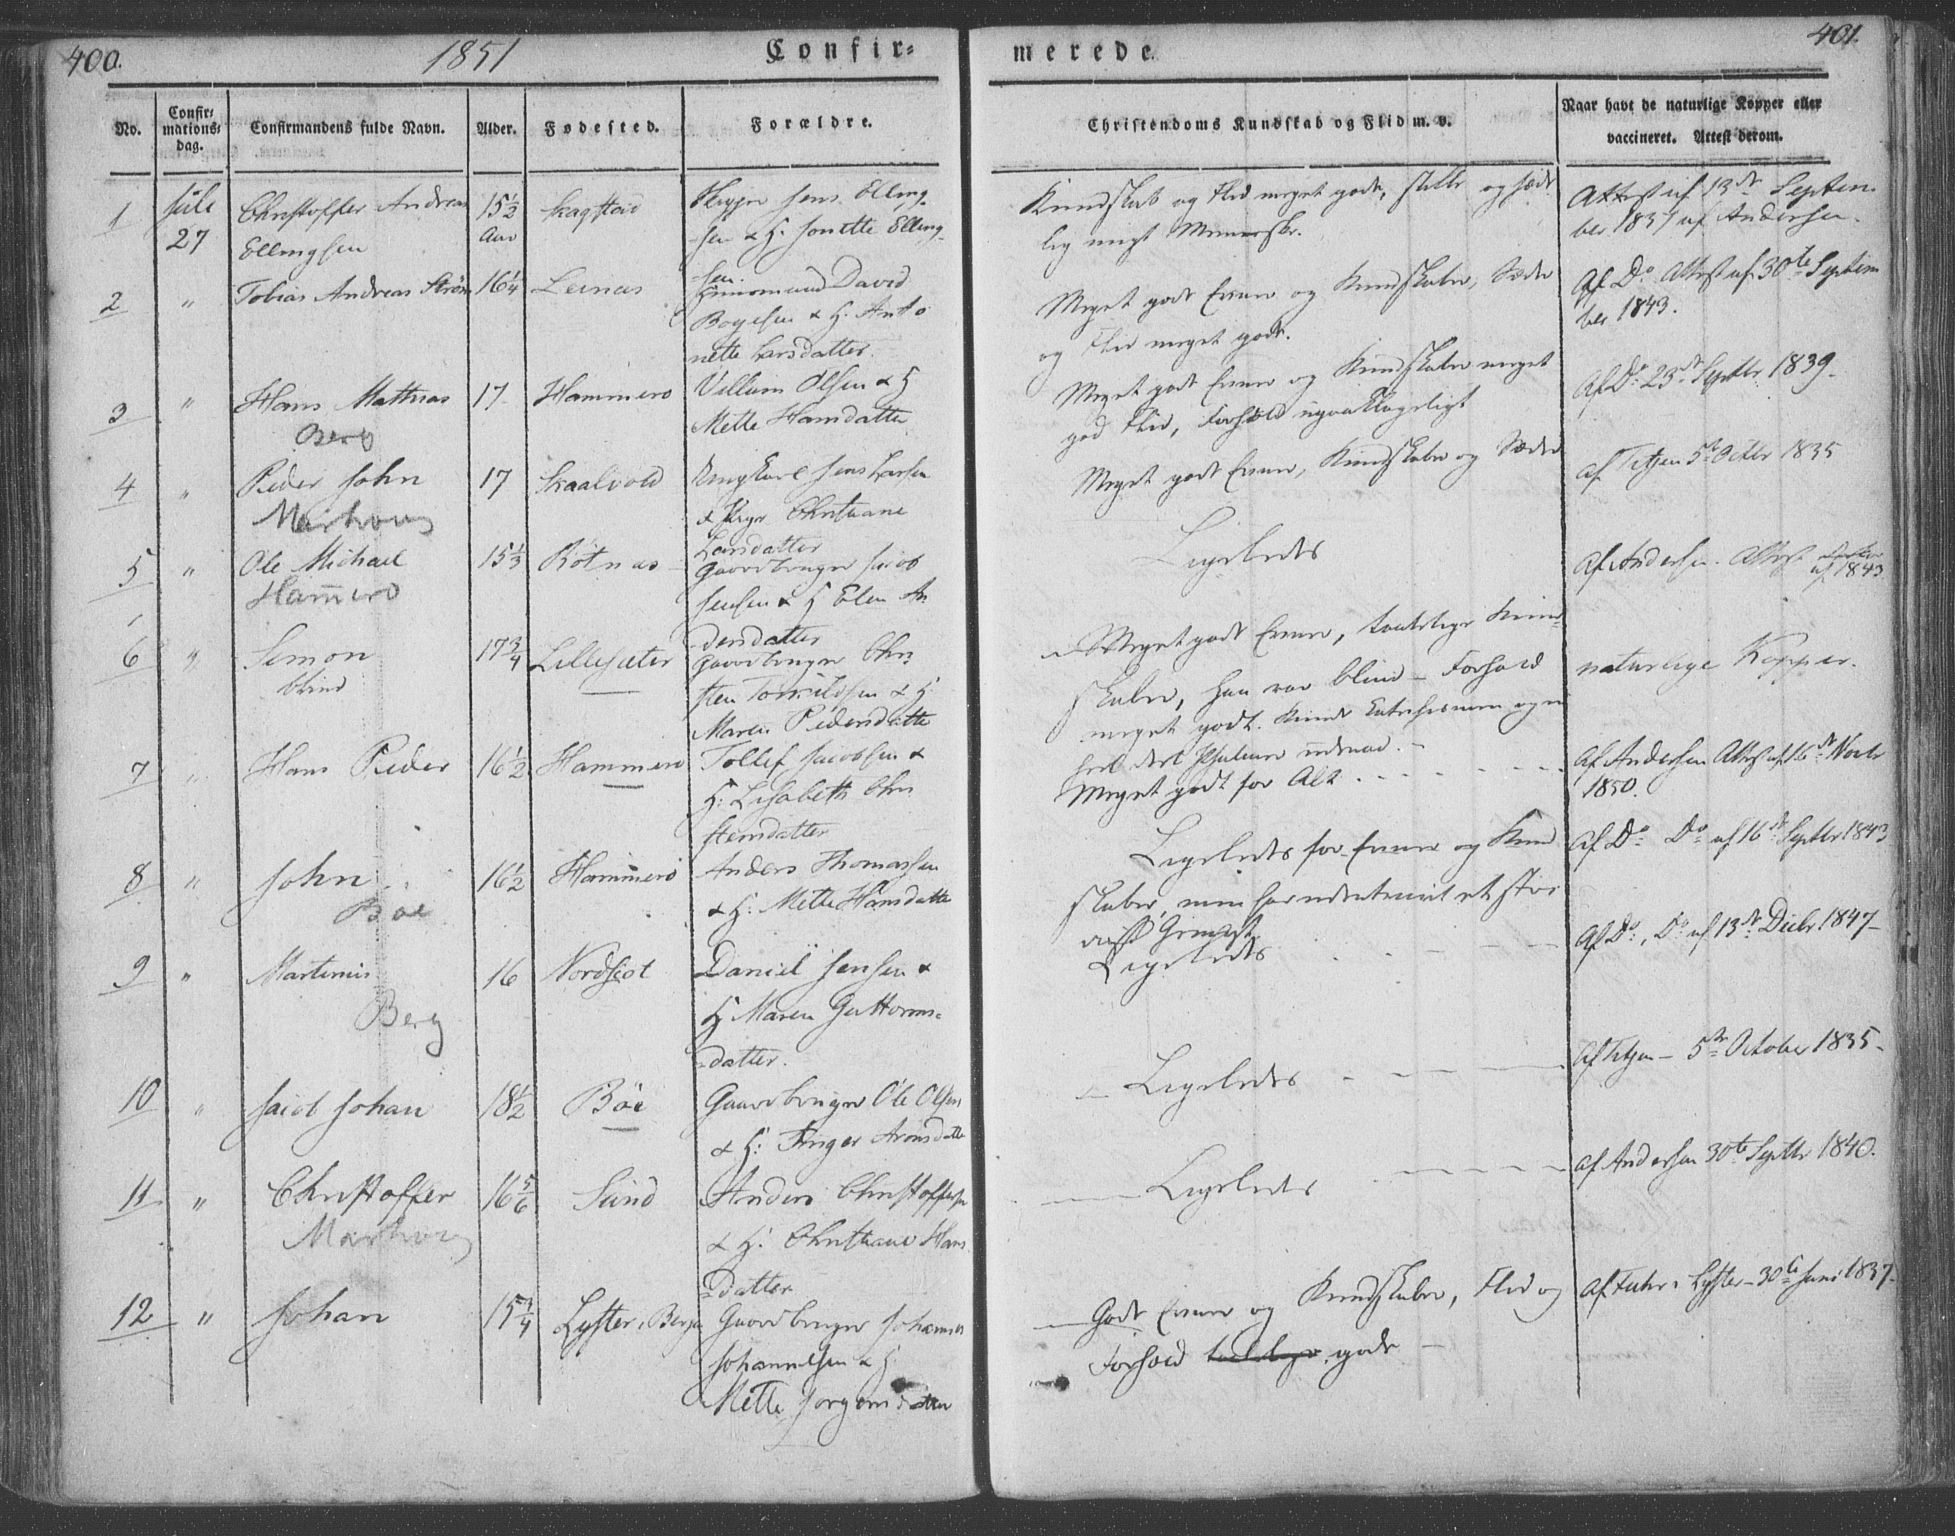 400.
1851
Confir=
merede.
401.
No.
Confir=
mations=
dag.
Confirmandens fulde Navn.
Alder.
Fødested.
Forældre.
Christendoms Kundskab og Flid m. v.
Naar havt de naturlige Kopper eller
vaccineret. Attest derom.
1
Juli
27
Christoffer Andreas
Ellingsen
15½
Aar
Skagstad
Jens Elling-
sen & H. Jonette Elling-
sen
Kundskab og Flid meget gode, stille og sæde
lig
Attest af 13de Septem
ber 1837 af Andersen.
2
"
Tobias Andreas Strøm
16¼
Leines
David
Boyesen & H. Anto
nette Larsdatter.
Meget godt Evner og Kundskaber, Sæder
og Flid meget gode.
Af Do Attest af 30te Septem
ber 1843.
3
"
Hans Mathias
Berg
17
Hammerø
Villum Olsen & H
Mette Hansdatter
Meget godt Evner og Kundskaber meget
god Flid, Forhold upaaklageligt
Af Do 23de Septbr 1839.
4
"
Peder John
Marhoug
17
Skaalvold
Jens Larsen
& Christiane
Larsdatter
Meget godt Evner, Kundskaber og Sæder
af Tetjen 5te Octbr 1835
5
"
Ole Michael
Hammerø
15⅓
Botnas
Gaardbruger Jacob
Jensen & H Elen An
dersdatter
Ligeledes
Af Andersen. Attest
af 1843
6
"
Simon
blind
17¾
Lillesæter
Gaardbruger Chri
sten & H.
Maren Pedersdatter
Meget godt Evner, taalelige Kund
skaber, han var blind - Forhold
meget godt. Kunde
naturlige Kopper.
7
"
Hans Peder
16½
Hammerø
Tollef Jacobsen &
H: Lisabeth Chri
stensdatter
Meget godt for Alt
af Andersen Attest af 16de Novbr
1850.
8
"
John
Bøe
16½
Hammerø
Anders Thomassen
& H: Mette Hansdatter
Ligeledes for Evner og Kund
skaber, men har
Af Do Do af 16de Septbr 1843
9
"
Martinus
Berg
16
Nordfjot
Daniel Jensen &
H Maren Guttorms=
datter.
Ligeledes
Af Do, Do af 13de Decbr 1847
10
"
Jacob Johan
18½
Bøe
Gaardbruger Ole Olsen
& H: Inger Aronsdatter
Ligeledes
Af Tetjen - 5te October 1835
11
"
Christoffer
Marhoug
16⅚
Sund
Anders Christoffersen
& H: Christiane Hans
datter
Ligeledes
af Andersen 30te Septbr 1840.
12
"
Johan
15¾
Lyster, Bergen
Gaardbruger Johannes
Johannesen & H
Mette Jørgensdatter
Godt Evner og Kundskaber, Flid og
Forhold gode
af Lyster - 30te Juni 1837